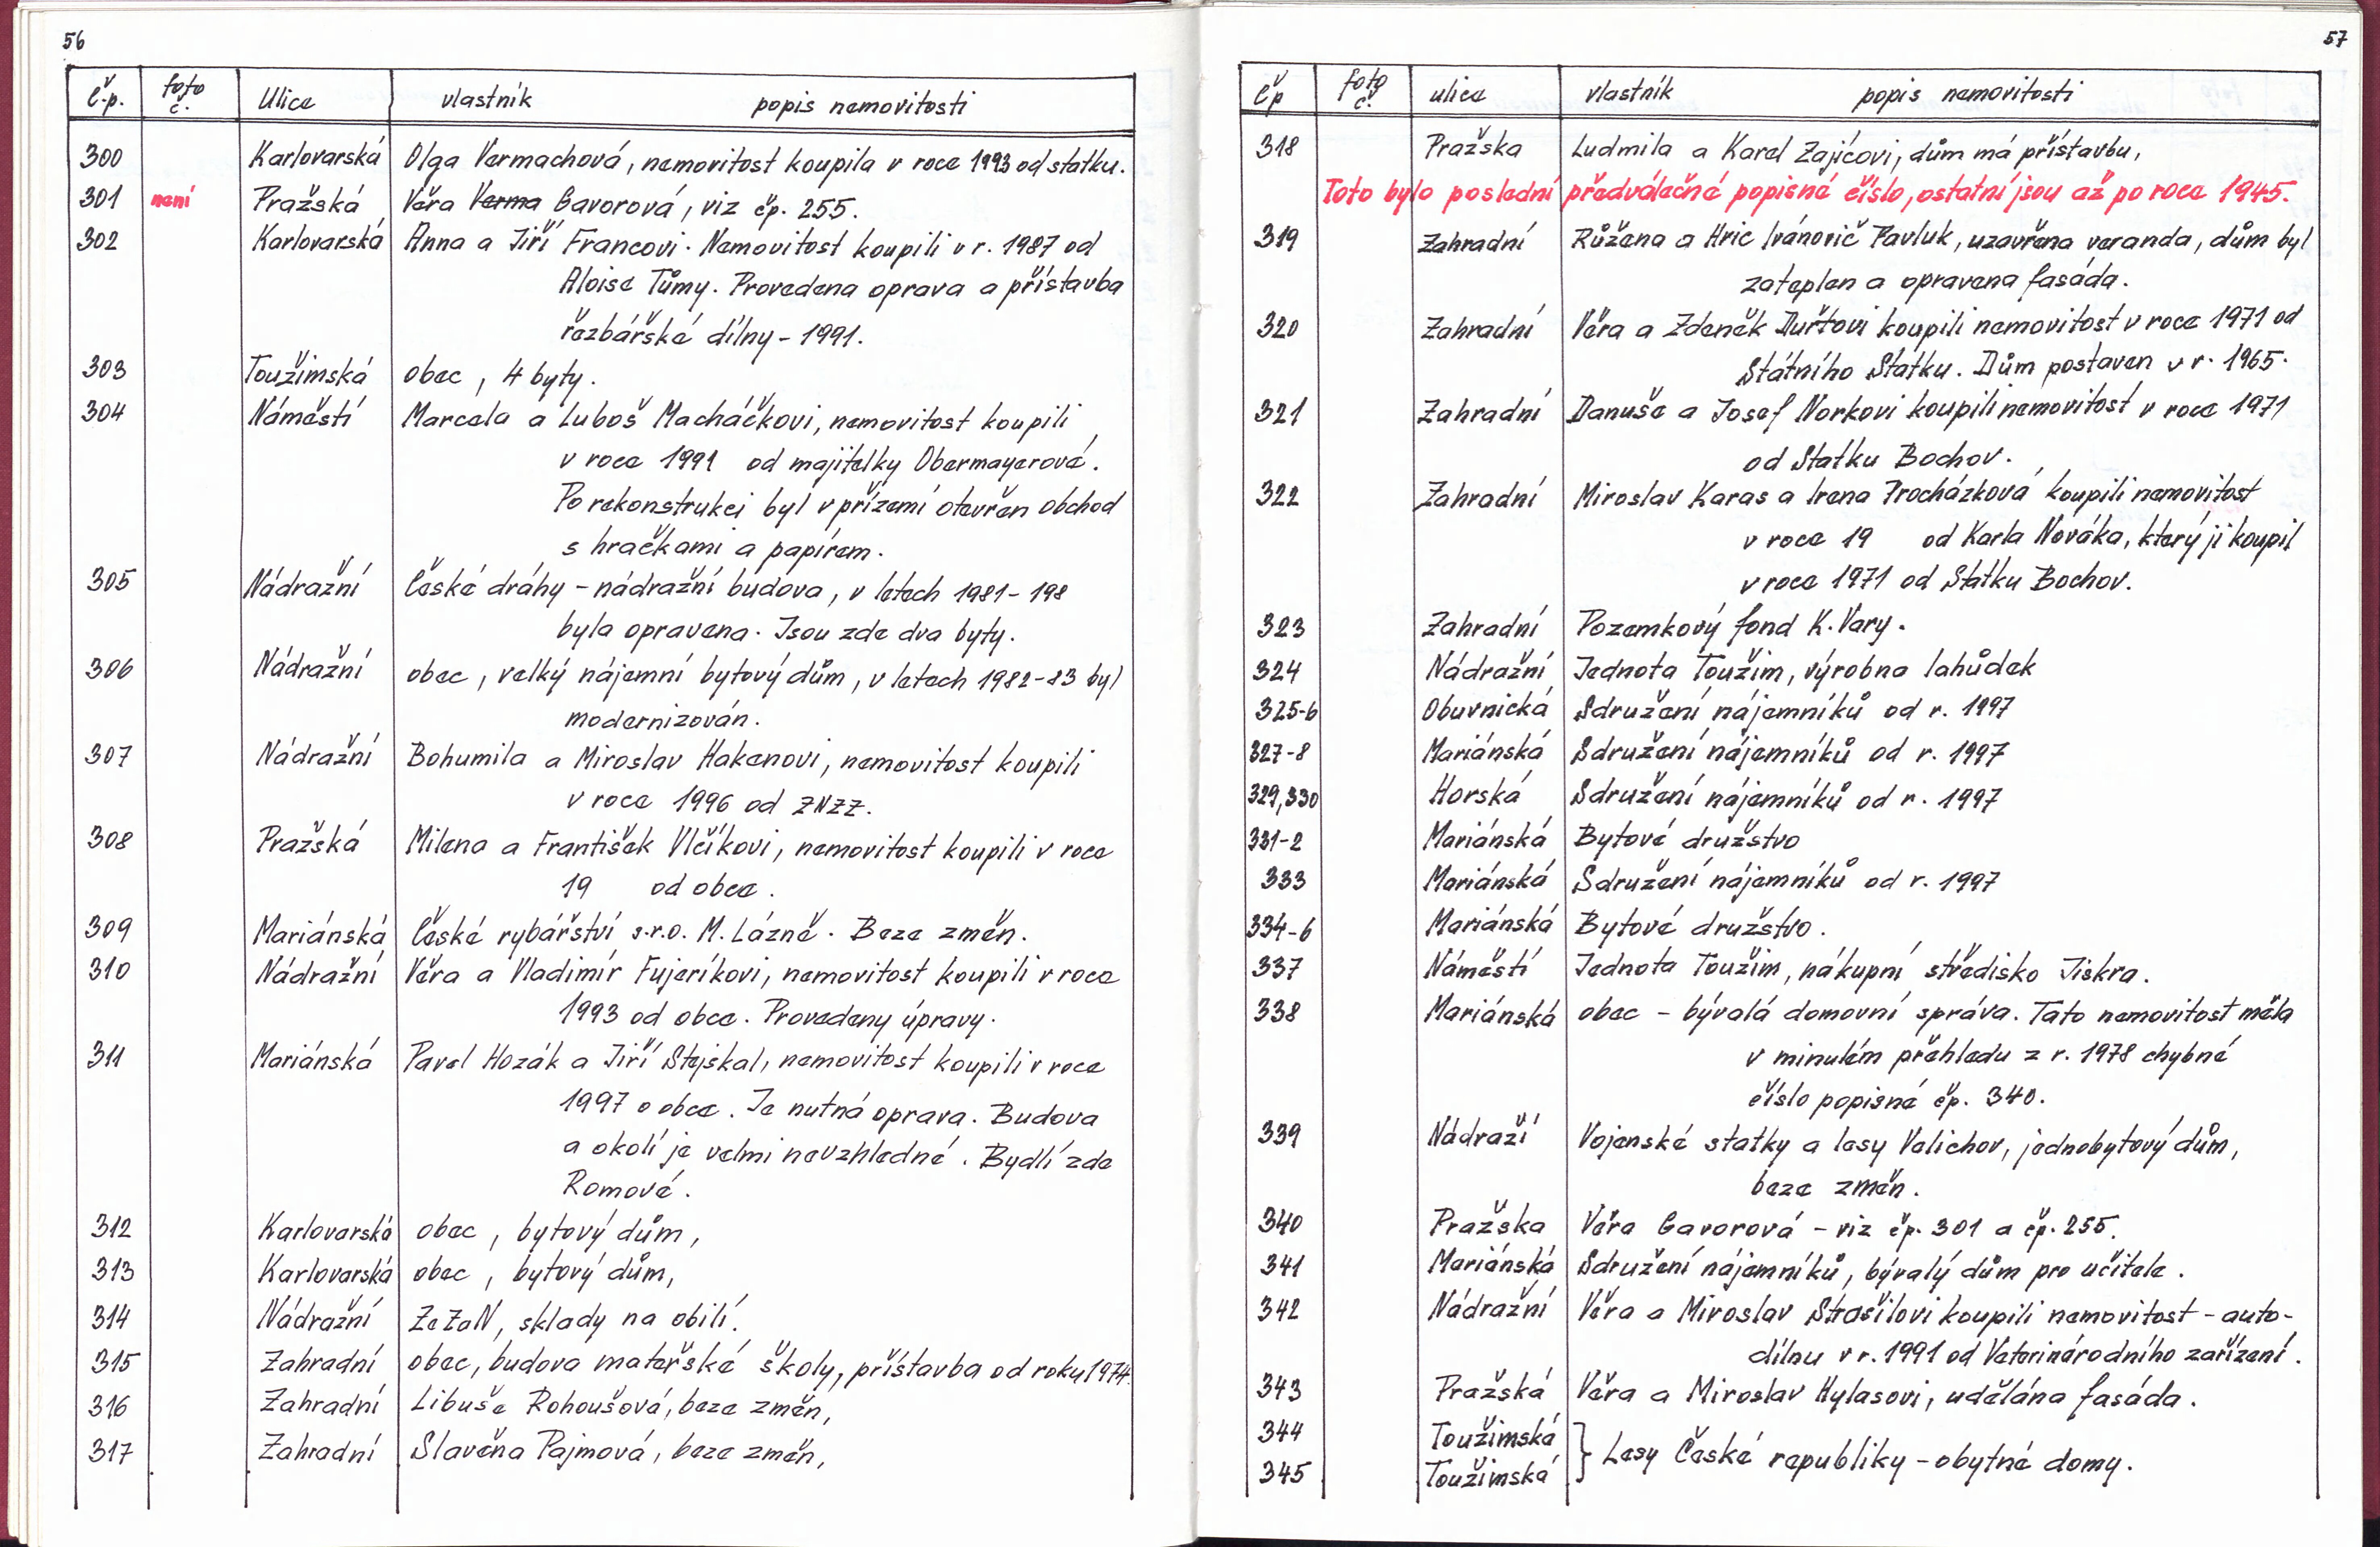 56
č.p. foto č. Ulice vlastník popis nemovitosti
300 Karlovarská Olga Vermachová, nemovitost koupila v roce 1993 od statku.
301 není Pražská Věra Verma Gavorová, viz čp. 255.
302 Karlovarská Anna a Jiří Francovi. Nemovitost koupili v r. 1987 od
Aloise Tůmy. Provedena oprava a přístavba
řezbářské dílny - 1991.
303 Toužimská obec, 4 byty.
304 Náměstí Marcela a Luboš Macháčkovi, nemovitost koupili
v roce 1991 od majitelky Obermayerové.
Po rekonstrukci byl v přízemí otevřen obchod
s hračkami a papírem.
305 Nádražní České dráhy - nádražní budova, v letech 1981 - 198
byla opravena. Jsou zde dva byty.
306 Nádražní obec, velký nájemní bytový dům, v letech 1982-83 byl
modernizován.
307 Nádražní Bohumila a Miroslav Hakenovi, nemovitost koupili
v roce 1996 od ZNZZ.
308 Pražská Milena a František Vlčíkovi, nemovitost koupili v roce
19 od obce.
309 Mariánská České rybářství s.r.o. M. Lázně. Beze změn.
310 Nádražní Věra a Vladimír Fujeríkovi, nemovitost koupili v roce
1993 od obce. Provedeny úpravy.
311 Mariánská Pavel Hozák a Jiří Stejskal, nemovitost koupili v roce
1997 o obce. Je nutná oprava. Budova
a okolí je velmi nevzhledné. Bydlí zde
Romové.
312 Karlovarská obec, bytový dům,
313 Karlovarská obec, bytový dům,
314 Nádražní ZeZaN, sklady na obilí.
315 Zahradní obec, budova mateřské školy, přístavba od roku 1974.
316 Zahradní Libuše Rohoušová, beze změn,
317 Zahradní Slavěna Pajmová, beze změn,
57
čp foto č. ulice vlastník popis nemovitosti
318 Pražska Ludmila a Karel Zajícovi, dům má přístavbu,
Toto bylo poslední předválečné popisné číslo, ostatní jsou až po roce 1945.
319 Zahradní Růžena a Hric Ivánovič Pavluk, uzavřena veranda, dům byl
zateplen a opravena fasáda.
320 Zahradní Věra a Zdeněk Duřtovi koupili nemovitost v roce 1971 od
Státního Statku. Dům postaven v r. 1965.
321 Zahradní Danuše a Josef Norkovi koupili nemovitost v roce 1971
od Statku Bochov.
322 Zahradní Miroslav Karas a Irena Procházková koupili nemovitost
v roce 19 od Karla Nováka, který ji koupil
v roce 1971 od Statku Bochov.
323 Zahradní Pozemkový fond K. Vary.
324 Nádražní Jednota Toužim, výrobna lahůdek
325-6 Obuvnická Sdružení nájemníků od r. 1997
327-8 Mariánská Sdružení nájemníků od r. 1997
329,330 Horská Sdružení nájemníků od r. 1997
331-2 Mariánská Bytové družstvo
333 Mariánská Sdružení nájemníků od r. 1997
334-6 Mariánská Bytové družstvo.
337 Náměstí Jednota Toužim, nákupní středisko Jiskra.
338 Mariánská obec - bývalá domovní správa. Tato nemovitost měla
v minulém přehledu z r. 1978 chybné
číslo popisné čp. 340.
339 Nádraží Vojenské statky a lesy Velichov, jednobytový dům,
beze změn.
340 Pražska Věra Gavorová - viz čp. 301 a čp. 255.
341 Mariánská Sdružení nájemníků, bývalý dům pro učitele.
342 Nádražní Věra a Miroslav Strašilovi koupili nemovitost - auto-
dílnu v r. 1991 od Veterinárodního zařízení.
343 Pražská Věra a Miroslav Hylasovi, udělána fasáda.
344 Toužimská } Lesy České republiky - obytné domy.
345 Toužimská